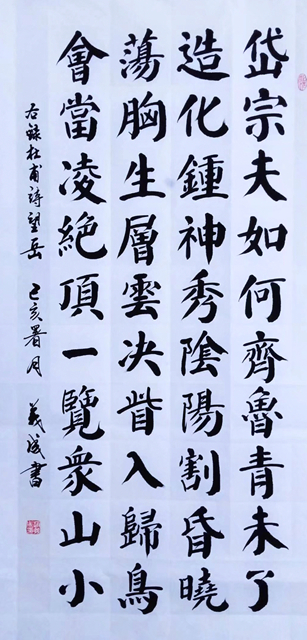 岱宗夫如何齊魯青未了
造化鍾神秀陰陽割昏曉
蕩胸生層雲决眥入歸鳥
會當凌絕頂一覽衆山小
右録杜甫詩望岳 己亥暑月 義成書